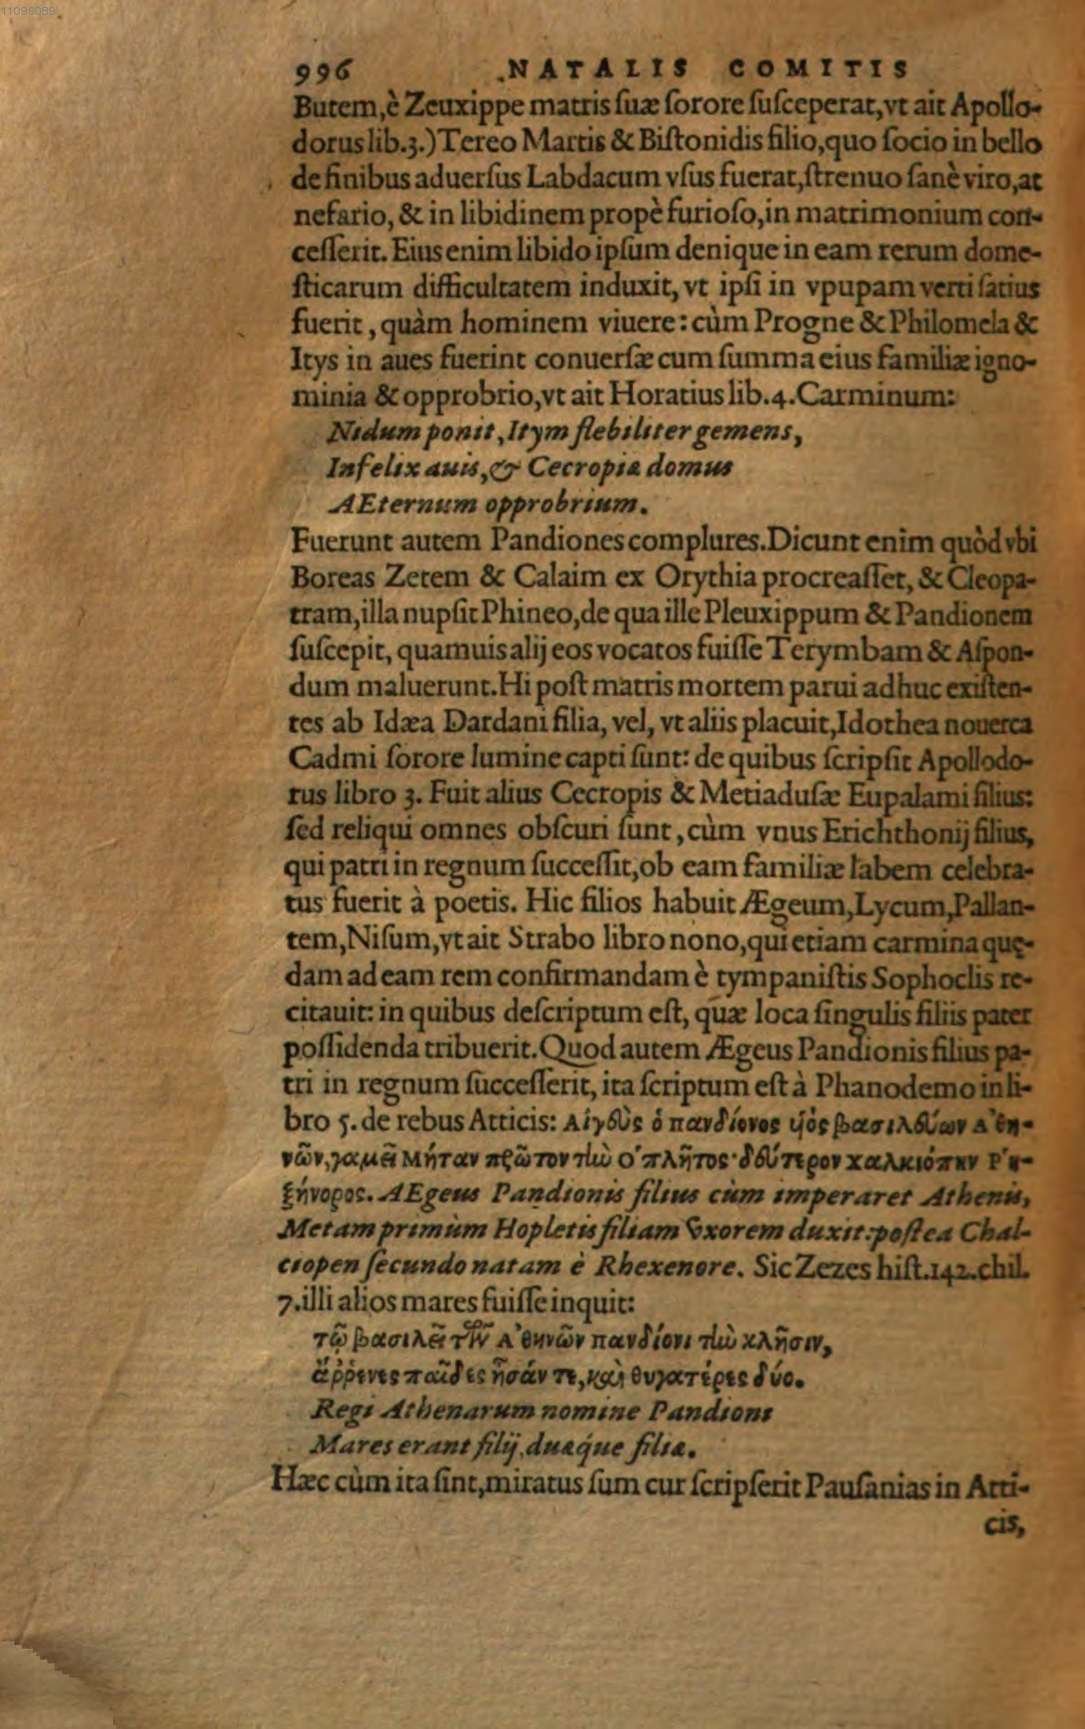 11098089
996 NATALIS COMITIS
Butem, è Zeuxippe matris suæ sorore susceperat, vt ait Apollo-
dorus lib.3.) Tereo Martis & Bistonidis filio, quo socio in bello
de finibus aduersus Labdacum vsus fuerat, strenuo sanè viro, at
nefario, & in libidinem propè furioso, in matrimonium con-
cesserit. Eius enim libido ipsum denique in eam rerum dome-
sticarum difficultatem induxit, vt ipsi in vpupam verti satius
fuerit, quàm hominem viuere: cùm Progne & Philomela &
Itys in aues fuerint conuersæ cum summa eius familiæ igno-
minia & opprobrio, vt ait Horatius lib.4. Carminum:
Nidum ponit, Itym flebiliter gemens,
Infelix auis, & Cecropiæ domus
AEternum opprobrium.
Fuerunt autem Pandiones complures. Dicunt enim quòd vbi
Boreas Zetem & Calaim ex Orythia procreasset, & Cleopa-
tram, illa nupsit Phineo, de qua ille Pleuxippum & Pandionem
suscepit, quamuis alij eos vocatos fuisse Terymbam & Aspon-
dum maluerunt. Hi post matris mortem parui adhuc existen-
tes ab Idæa Dardani filia, vel, vt aliis placuit, Idothea nouerca
Cadmi sorore lumine capti sunt: de quibus scripsit Apollodo-
rus libro 3. Fuit alius Cecropis & Metiadusæ Eupalami filius:
sed reliqui omnes obscuri sunt, cùm vnus Erichthonij filius,
qui patri in regnum successit, ob eam familiæ labem celebra-
tus fuerit à poetis. Hic filios habuit Ægeum, Lycum, Pallan-
tem, Nisum, vt ait Strabo libro nono, qui etiam carmina quę-
dam ad eam rem confirmandam è tympanistis Sophoclis re-
citauit: in quibus descriptum est, quæ loca singulis filiis pater
possidenda tribuerit. Quod autem Ægeus Pandionis filius pa-
tri in regnum successerit, ita scriptum est à Phanodemo in li-
bro 5. de rebus Atticis: Αἰγεὺς ὁ πανδίονος ὑιὸς βασιλεύων Ἀθη-
νῶν, γαμεῖ Μήταν πρῶτον τὴν Ὁπλῆτος· δεύτερον χαλκιόπην Ῥη-
ξήνορος. AEgeus Pandionis filius cùm imperaret Athenis,
Metam primùm Hopletis filiam vxorem duxit: postea Chal-
ciopen secundo natam è Rhexenore. Sic Zezes hist.142. chil.
7. illi alios mares fuisse inquit:
τῷ βασιλεῖ τῶν Ἀθηνῶν πανδίονι τὴν κλῆσιν,
ἄῤῥενες παῖδες ἦσάν τε, καὶ θυγατέρες δύο.
Regi Athenarum nomine Pandioni
Mares erant filij, duæque filiæ.
Hæc cùm ita sint, miratus sum cur scripserit Pausanias in Atti-
cis,